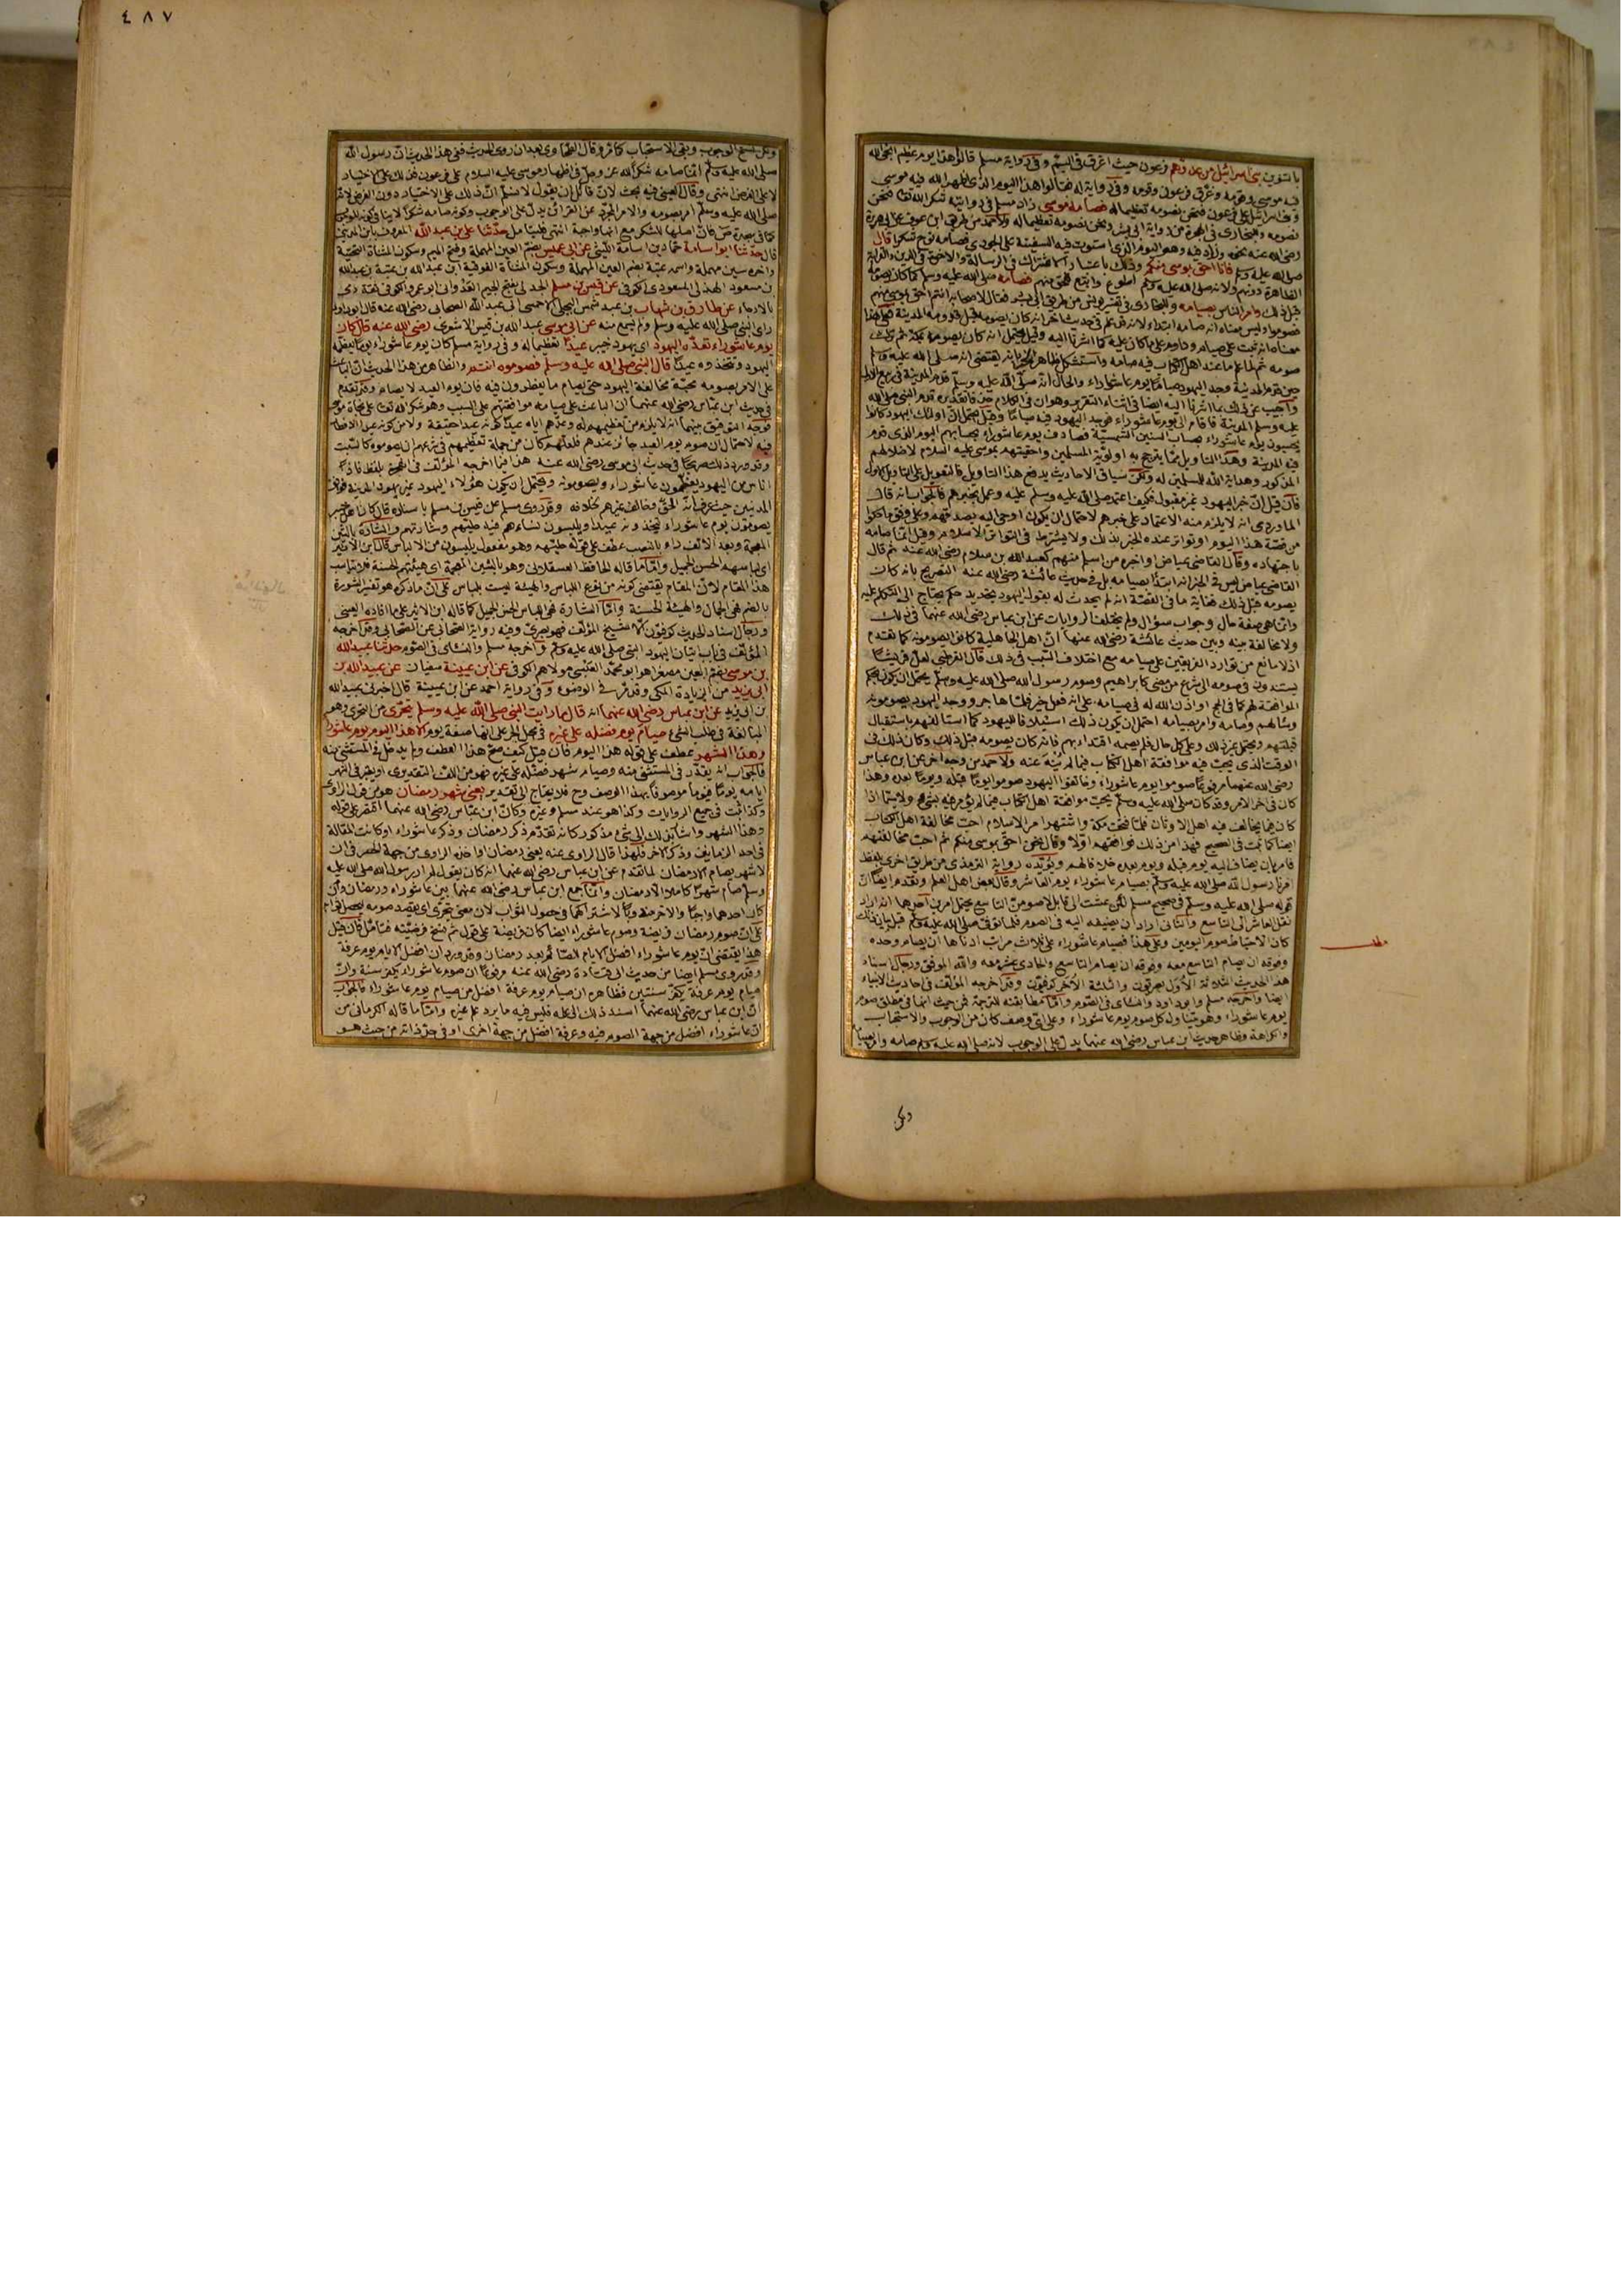 بالتنوين بنى اسرائيل من عدوهم فرعون حيث اغرق فى اليم وفى رواية مسلم قالوا هذا يوم عظيم انجى الله
فيه موسى وقومه وغرق فرعون وقومه وفى رواية له فقالوا هذا اليوم الذى اظهر الله فيه موسى
وبنى اسرائيل على فرعون فنحن نصومه تعظيما له فصامه موسى زاد مسلم فى روايته شكرا لله تعالى فنحن
نصومه وللبخارى فى الهجرة من رواية ابى بشر ونحن نصومه تعظيما له ولاحمد من طريق ابن عوف عن ابى هريرة
رضى الله عنه نحوه وزاد فيه وهو اليوم الذى استوت فيه السفينة على الجودى فصامه نوح شكرا قال
صلى الله عليه وسلم فانا احق بموسى منكم وذلك باعتبار الاشتراك فى الرسالة والاخوة فى الدين والقرابة
الظاهرة دونهم ولانه صلى الله عليه وسلم اطوع واتبع للحق منهم فصامه صلى الله عليه وسلم كما كان يصومه
قبل ذلك وامر الناس بصيامه وللبخارى فى تفسير يونس من طريق ابى بشر فقال لاصحابه انتم احق بموسى منهم
فصوموا وليس معناه انه صامه ابتداء لانه قد علم فى حديث اخر انه كان يصومه قبل قدومه المدينة فعلى هذا
معناه انه ثبت على صيامه وداوم على ما كان عليه كما اشرنا اليه وقيل يحتمل انه كان يصومه بمكة ثم ترك
صومه ثم لما علم ما عند اهل الكتاب فيه صامه واستشكل ظاهر الخبر بانه يقتضى انه صلى الله عليه وسلم
حين قدم المدينة وجد اليهود صياما يوم عاشوراء والحال انه صلى الله عليه وسلم قدم المدينة فى ربيع الاول
واجيب عن ذلك بما اشرنا اليه ايضا فى اثناء التقرير وهو ان فى الكلام حذفا تقديره قدم النبى صلى الله
عليه وسلم المدينة فاقام الى يوم عاشوراء فوجد اليهود فيه صياما وقيل يحتمل ان اولئك اليهود كانوا
يحسبون يوم عاشوراء بحساب السنين الشمسية فصادف يوم عاشوراء بحسابهم اليوم الذى قدم
فيه المدينة وهذا التاويل مما يترجح به اولوية المسلمين واحقيتهم بموسى عليه السلام لاضلالهم
المذكور وهداية الله للمسلمين له ولكن سياق الاحاديث يدفع هذا التاويل فالتعويل على التاويل الاول
فان قيل ان خبر اليهود غير مقبول فكيف اعتمد صلى الله عليه وسلم عليه وعمل بخبرهم فالجواب انه قال
الماوردى انه لا يلزم منه الاعتماد على خبرهم لاحتمال ان يكون اوحى اليه بصدقهم وعلى وفق ما حكوا
من قصة هذا اليوم او تواتر عنده الخبر بذلك ولا يشترط فى التواتر الاسلام وقيل انما صامه
باجتهاده وقال القاضى عياض او اخبره من اسلم منهم كعبد الله بن سلام رضى الله عنه ثم قال
القاضى عياض ليس فى الخبر انه ابتدأ بصيامه بل فى حديث عائشة رضى الله عنه التصريح بانه كان
يصومه قبل ذلك فغاية ما فى القصة انه لم يحدث له بقول اليهود تجديد حكم يحتاج الى التكلم عليه
وانما هى صفة حال وجواب سؤال ولم تختلف الروايات عن ابن عباس رضى الله عنهما فى ذلك
ولا مخالفة بينه وبين حديث عائشة رضى الله عنها ان اهل الجاهلية كانوا يصومونه كما تقدم
اذ لا مانع من توارد الفريقين على صيامه مع اختلاف السبب فى ذلك قال القرطبى لعل قريشا
يستندون فى صومه الى شرع من مضى كابراهيم وصوم رسول الله صلى الله عليه وسلم يحتمل ان يكون بحكم
الموافقة لهم كما فى الحج او اذن الله له فى صيامه على انه فعل خير فلما هاجر ووجد اليهود يصومونه
وسألهم وصامه وامر بصيامه احتمل ان يكون ذلك استيلافا لليهود كما استألفهم باستقبال
قبلتهم ويحتمل غير ذلك وعلى كل حال فلم يصمه اقتداء بهم فانه كان يصومه قبل ذلك وكان ذلك فى
الوقت الذى يحب فيه موافقة اهل الكتاب فيما لم ينه عنه ولاحمد من وجه اخر عن ابن عباس
رضى الله عنهما مرفوعا صوموا يوم عاشوراء وخالفوا اليهود صوموا يوما قبله ويوما بعده وهذا
كان فى اخر الامر وقد كان صلى الله عليه وسلم يحب موافقة اهل الكتاب فيما لم يؤمر فيه بشئ ولا سيما اذا
كان فيما يخالف فيه اهل الاوثان فلما فتحت مكة واشتهر امر الاسلام احب مخالفة اهل الكتاب
ايضا كما ثبت فى الصحيح فهذا من ذلك فوافقهم اولا وقال نحن احق بموسى منكم ثم احب مخالفتهم
فامر بان يضاف اليه يوم قبله ويوم بعده خلافا لهم ويؤيده رواية الترمذى من طريق اخرى بلفظ
امرنا رسول الله صلى الله عليه وسلم بصيام عاشوراء يوم العاشر وقال بعض اهل العلم وتقدم ايضا ان
قوله صلى الله عليه وسلم فى صحيح مسلم لئن عشت الى قابل لاصومن التاسع يحتمل امرين احدهما انه اراد
نقل العاشر الى التاسع والثانى اراد ان يضيفه اليه فى الصوم فلما توفى صلى الله عليه وسلم قبل بيان ذلك
كان الاحتياط صوم اليومين وعلى هذا فصيام عاشوراء على ثلاث مراتب ادناها ان يصام وحده
وفوقه ان يصام التاسع معه وفوقه ان يصام التاسع والحادى عشر معه والله الموفق ورجال اسناد
هذا الحديث الثلاثة الاول بصريون والثلاثة الاخر كوفيون وقد اخرجه المؤلف فى احاديث الانبياء
ايضا واخرجه مسلم وابو داود والنسائى فى الصوم واما مطابقته للترجمة فمن حيث انها فى مطلق صوم
يوم عاشوراء وهو يتناول كل صوم يوم عاشوراء وعلى اى وصف كان من الوجوب والاستحباب
والكراهة وظاهر حديث ابن عباس رضى الله عنهما يدل على الوجوب لانه صلى الله عليه وسلم صامه وامر بصيامه
مطلب
ولكن
٤٨٧
ولكن نسخ الوجوب وبقى الاستحباب كما مر وقال الطحاوى بعد ان روى الحديث ففى هذا الحديث ان رسول الله
صلى الله عليه وسلم انما صامه شكرا لله عز وجل فى اظهاره موسى عليه السلام على فرعون فذلك على الاختيار
لا على الفرض انتهى وقال العينى فيه بحث لان لقائل ان يقول لا نسلم ان ذلك على الاختيار دون الفرض لانه
صلى الله عليه وسلم امر بصومه والامر المجرد عن القرائن يدل على الوجوب وكونه صامه شكرا لا ينافى كونه للوجوب
كما فى سجدة ص فان اصلها للشكر مع انها واجبة انتهى فليتأمل حدثنا على بن عبد الله المعروف بابن المدينى
قال حدثنا ابو اسامة حماد بن اسامة الليثى عن ابى عميس بضم العين المهملة وفتح الميم وسكون المثناة التحتية
واخره سين مهملة واسمه عتبة بضم العين المهملة وسكون المثناة الفوقية ابن عبد الله بن عتبة بن عبد الله
بن مسعود الهذلى المسعودى الكوفى عن قيس بن مسلم الجدلى بفتح الجيم العدوانى ابو عمرو الكوفى ثقة رمى
بالارجاء عن طارق بن شهاب بن عبد شمس البجلى الاحمسى ابى عبد الله الصحابى رضى الله عنه قال ابو داود
راى النبى صلى الله عليه وسلم ولم يسمع منه عن ابى موسى عبد الله بن قيس الاشعرى رضى الله عنه قال كان
يوم عاشوراء تعده اليهود اى يهود خيبر عيدا تعظيما له وفى رواية مسلم كان يوم عاشوراء يوما تعظمه
اليهود وتتخذه عيدا قال النبى صلى الله عليه وسلم فصوموه انتم والظاهر من هذا الحديث ان الباعث
على الامر بصومه محبة مخالفة اليهود حتى يصام ما يفطرون فيه فان يوم العيد لا يصام وقد تقدم
فى حديث ابن عباس رضى الله عنهما ان الباعث على صيامه موافقتهم على السبب وهو شكر الله تعالى على نجاة موسى
فوجه التوفيق بينهما انه لا يلزم من تعظيمهم له وعدهم اياه عيدا كونه عيدا حقيقة ولا من كونه عيدا الافطار
فيه لاحتمال ان صوم يوم العيد جائز عندهم فلعلهم كان من جملة تعظيمهم فى شرعهم ان يصوموه كالسبت
وقد ورد ذلك صريحا فى حديث ابى موسى رضى الله عنه هذا فيما اخرجه المؤلف فى الهجرة بلفظ فاذا
اناس من اليهود يعظمون عاشوراء ويصومونه ويحتمل ان يكون هؤلاء اليهود غير يهود المدينة فوافق
المدنيين حيث عرف انه الحق وخالف غيرهم بخلافه وقد روى مسلم عن قيس بن مسلم باسناده قال كان اهل خيبر
يصومون يوم عاشوراء يتخذونه عيدا ويلبسون نساءهم فيه حليتهم وشارتهم والشارة بالشين
المعجمة وبعد الالف راء بالنصب عطف على قوله حليتهم وهو مفعول يلبسون من الالباس قال ابن الاثير
اى لباسهم الحسن الجميل واما ما قاله الحافظ العسقلانى وهو بالشين المعجمة اى هيئتهم الحسنة فلا يناسب
هذا المقام لان المقام يقتضى كونه من نوع اللباس والهيئة ليست بلباس على ان ما ذكره هو تفسير الشورة
بالضم فهى الجمال والهيئة الحسنة واما الشارة فهى اللباس الحسن الجميل كما قاله ابن الاثير على ما افاده العينى
ورجال اسناد الحديث كوفيون الا شيخ المؤلف فهو بصرى وفيه رواية الصحابى عن الصحابى وقد اخرجه
المؤلف فى باب اتيان اليهود النبى صلى الله عليه وسلم واخرجه مسلم والنسائى فى الصوم حدثنا عبيد الله
بن موسى بضم العين مصغرا هو ابو محمد العبسى مولاهم الكوفى عن ابن عيينة سفيان عن عبيد الله بن
ابى يزيد من الزيادة المكى وقد مر فى الوضوء وفى رواية احمد عن ابن عيينة قال اخبرنى عبيد الله
بن ابى يزيد عن ابن عباس رضى الله عنهما انه قال ما رايت النبى صلى الله عليه وسلم يتحرى من التحرى وهو
المبالغة فى طلب الشئ صيام يوم فضله على غيره فى محل الجر على انها صفة يوم الا هذا اليوم يوم عاشوراء
وهذا الشهر عطف على قوله هذا اليوم فان قيل كيف صح هذا العطف ولم يدخل فى المستثنى منه
فالجواب انه يقدر فى المستثنى منه وصيام شهر فضله على غيره فهو من اللف التقديرى او يعتبر فى الشهر
ايامه يوما فيوما موصوفا بهذا الوصف وح فلا يحتاج الى تقدير يعنى شهر رمضان هو من قول الراوى
وكذا ثبت فى جميع الروايات وكذا هو عند مسلم وغيره وكأن ابن عباس رضى الله عنهما اقتصر على قوله
وهذا الشهر واشار بذلك الى شئ مذكور كانه تقدم ذكر رمضان وذكر عاشوراء او كانت المقالة
فى احد الزمانين وذكر الاخر فلهذا قال الراوى عنه يعنى رمضان او اخذه الراوى من جهة الحصر فى ان
لا شهر يصام الا رمضان لما تقدم عن ابن عباس رضى الله عنهما انه كان يقول لم ار رسول الله صلى الله عليه
وسلم صام شهرا كاملا الا رمضان وانما جمع ابن عباس رضى الله عنهما بين عاشوراء ورمضان وان
كان احدهما واجبا والاخر مندوبا لاشتراكهما فى حصول الثواب لان معنى يتحرى اى يقصد صومه لتحصيل ثوابه
على ان صوم رمضان فريضة وصوم عاشوراء ايضا كان فريضة على قول ثم نسخ فرضيته فتأمل فان قيل
هذا يقتضى ان يوم عاشوراء افضل الايام للصائم بعد رمضان وقد ورد ان افضل الايام يوم عرفة
وقد روى مسلم ايضا من حديث ابى قتادة رضى الله عنه مرفوعا ان صوم عاشوراء يكفر سنة وان
صيام يوم عرفة يكفر سنتين فظاهره ان صيام يوم عرفة افضل من صيام يوم عاشوراء فالجواب
ان ابن عباس رضى الله عنهما اسند ذلك الى علمه فليس فيه ما يرد علم غيره واما ما قاله الكرمانى من
ان عاشوراء افضل من جهة الصوم فيه وعرفة افضل من جهة اخرى او فى حد ذاته من حيث هو